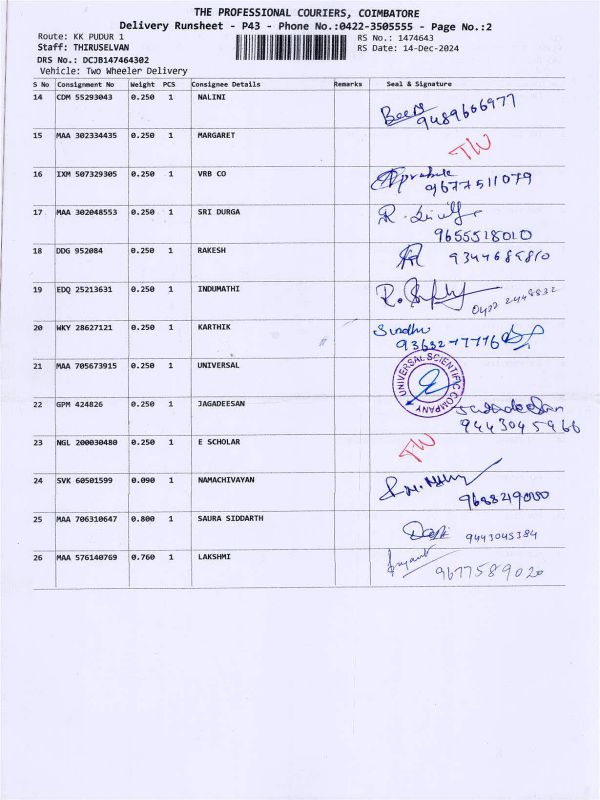 THE PROFESSIONAL COURIERS, COIMBATORE
Delivery Runsheet - P43 - Phone No.:0422-3505555 - Page No.:2
Route: KK PUDUR 1 RS No.: 1474643
Staff: THIRUSELVAN RS Date: 14-Dec-2024
DRS No.: DCJB147464302
Vehicle: Two Wheeler Delivery
S No Consignment No Weight PCS Consignee Details Remarks Seal & Signature
14 COM 55293043 0.250 1 NALINI
9489666977
15 MAA 302334435 0.250 1 MARGARET
TW
16 IXM 507329305 0.250 1 VRB CO
9677511079
17 MAA 302048553 0.250 1 SRI DURGA
9655518010
18 DDG 952084 0.250 1 RAKESH
19 EDQ 25213631 0.250 1 INDUMATHI
20 WKY 28627121 0.250 1 KARTHIK Sindhu
21 MAA 705673915 0.250 1 UNIVERSAL
UNIVERSAL SCIENTIFIC COMPANY
22 GPM 424826 0.250 1 JAGADEESAN Jagadeesan
9443045966
23 NGL 200030480 0.250 1 E SCHOLAR TW
24 SVK 60501599 0.090 1 NAMACHIVAYAN
25 MAA 706310647 0.800 1 SAURA SIDDARTH
9443045384
26 MAA 576140769 0.760 1 LAKSHMI
9677589020